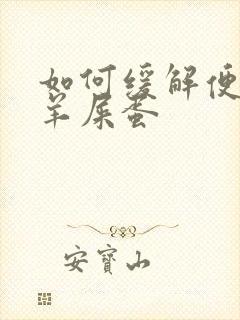 如何缓解便
羊屎蛋
安寶山